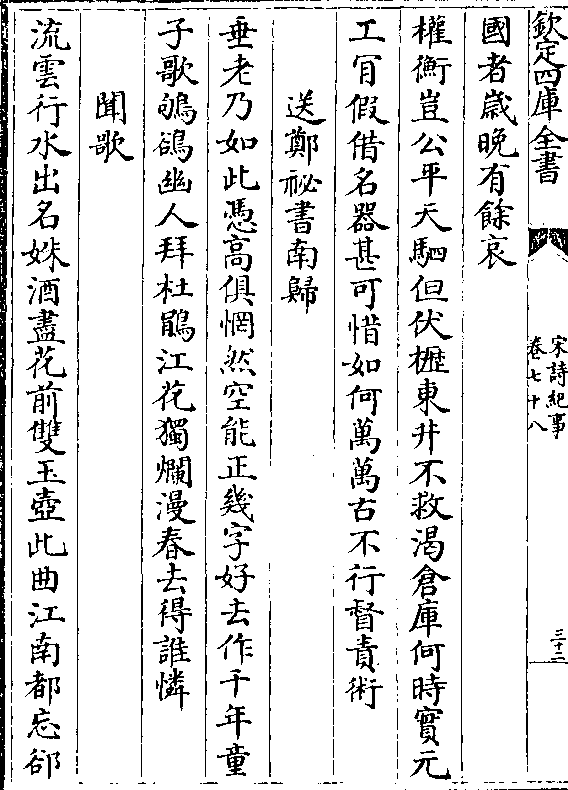 欽定四庫全書
宋詩紀事
卷七十八
三十二
國者歲晚有餘哀
權衡豈公平天駟但伏櫪東井不救渴倉庫何時實元
工肎假借名器甚可惜如何萬萬古不行督責術
送鄭祕書南歸
垂老乃如此憑高俱惘然空能正幾字好去作千年童
子歌鴝鵒幽人拜杜鵑江花獨爛漫春去得誰憐
聞歌
流雲行水出名姝酒盡花前雙玉壺此曲江南都忘郤